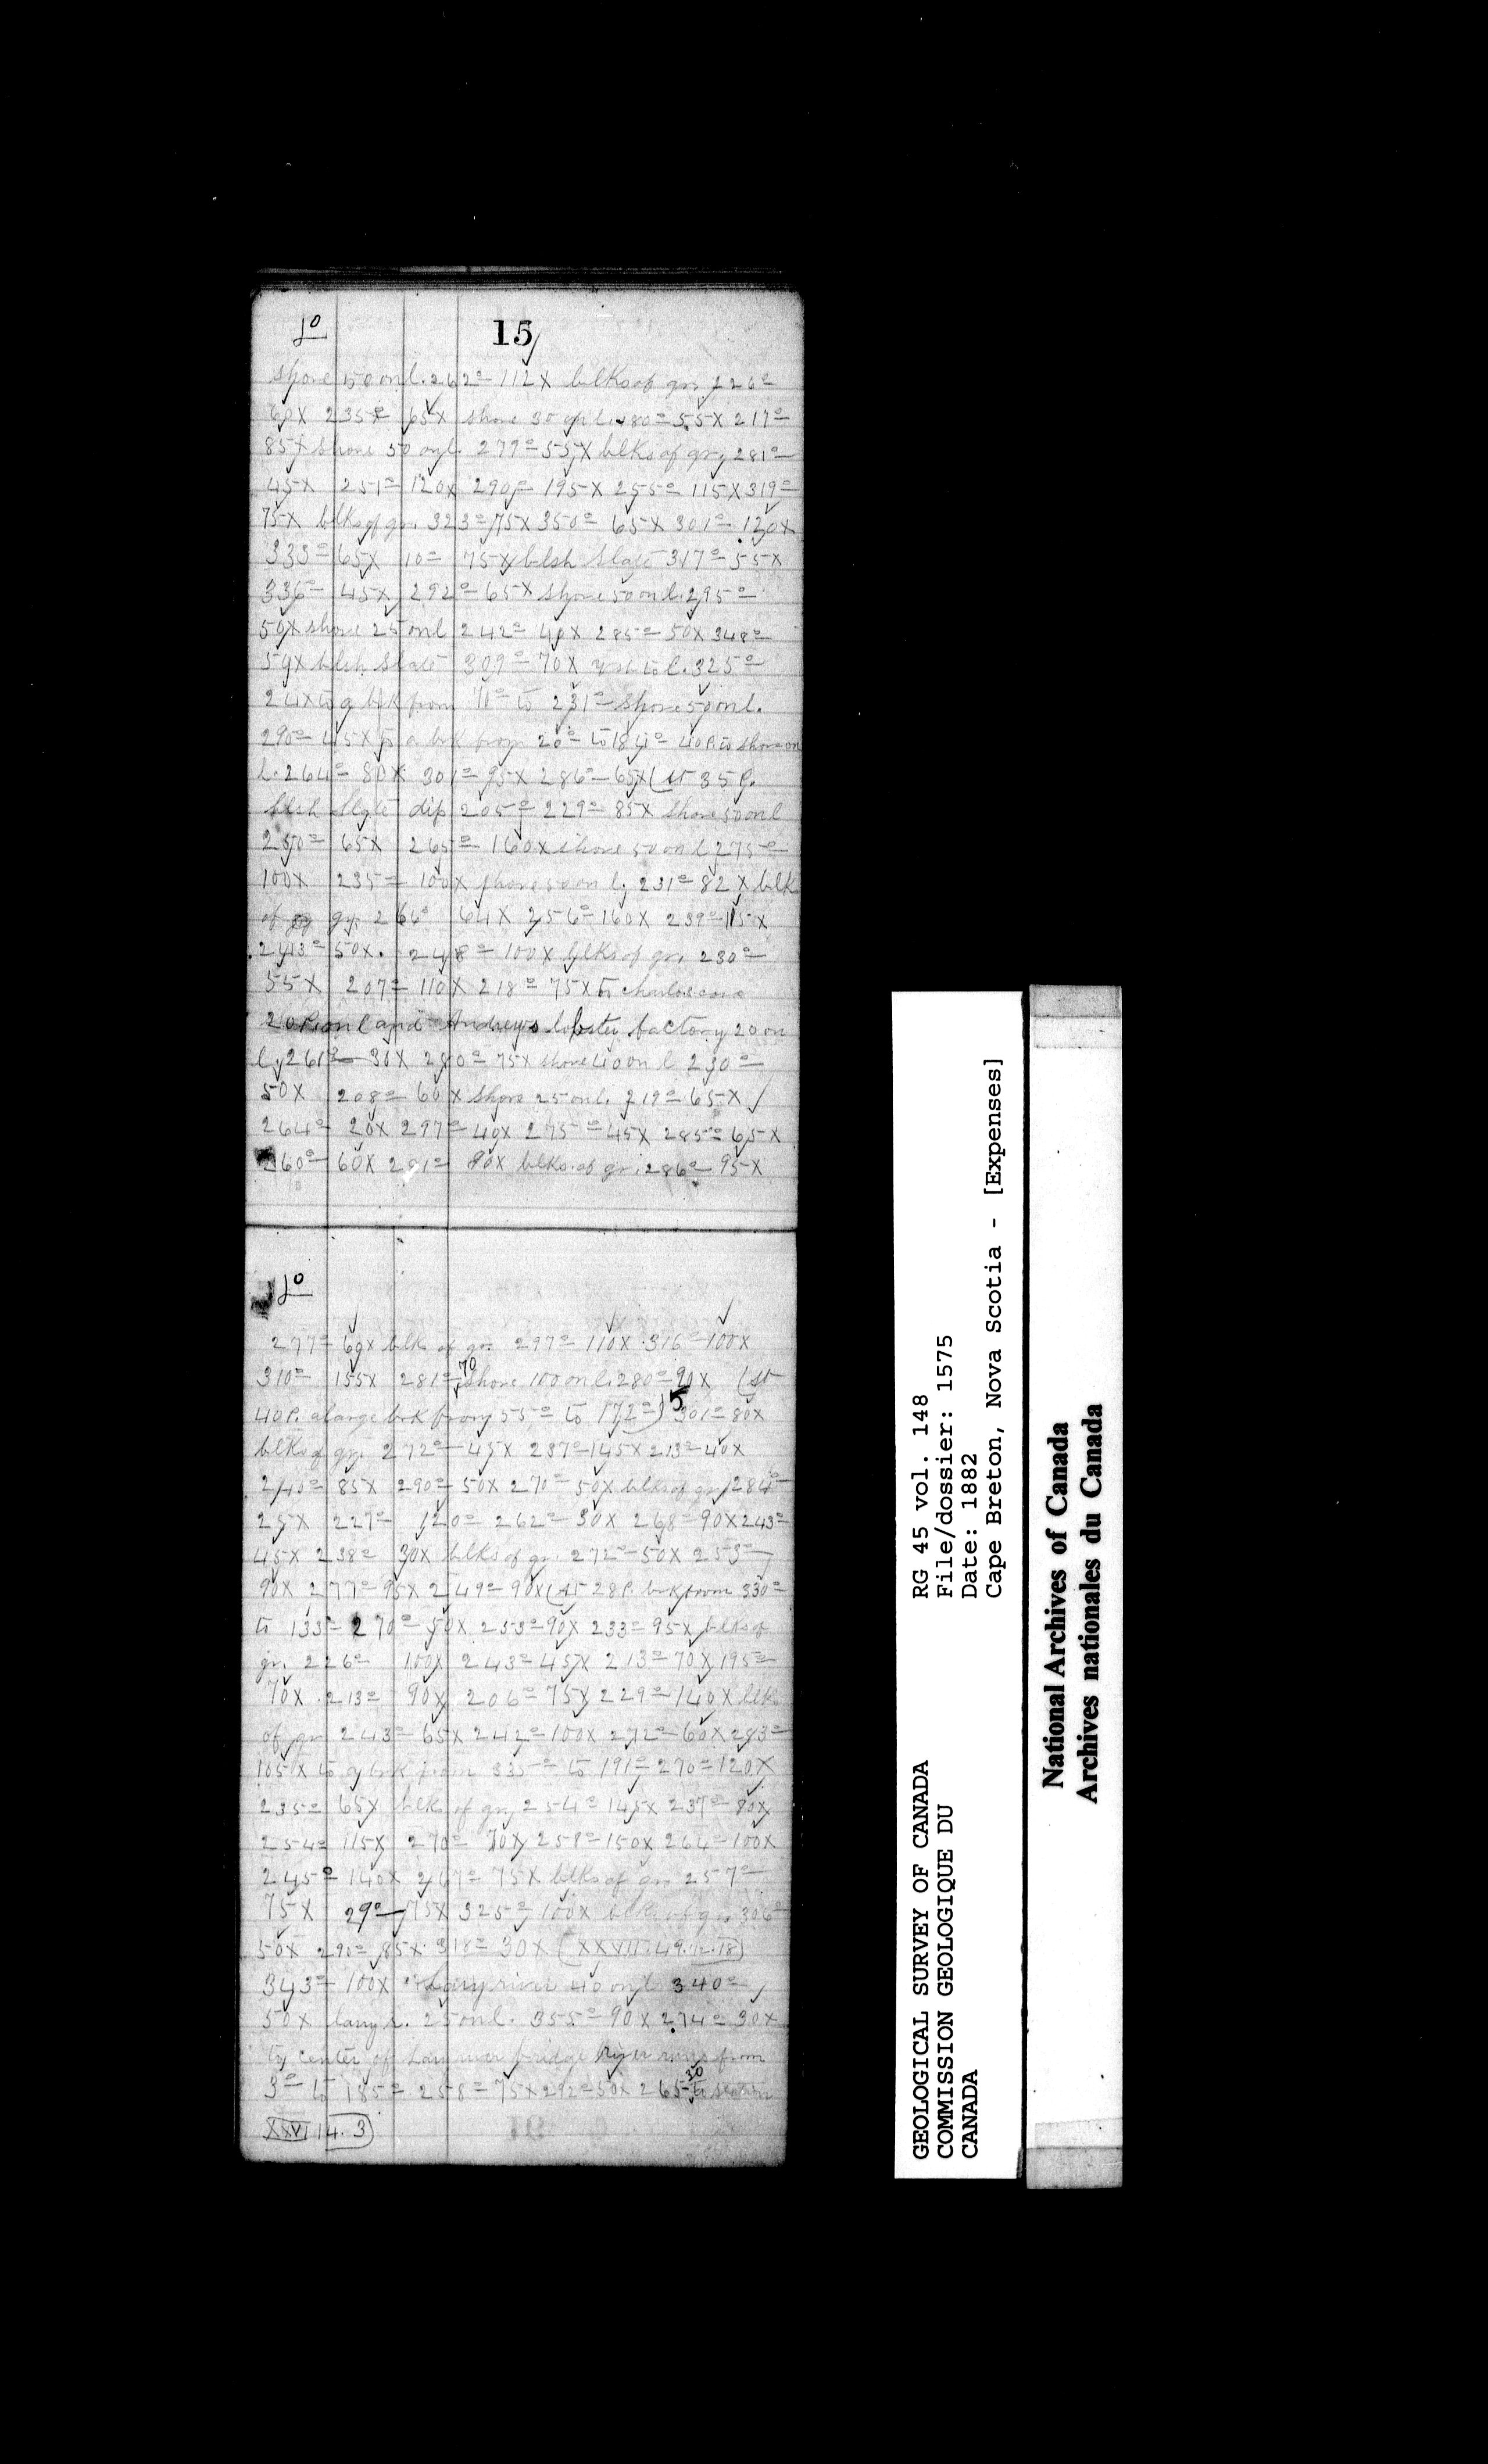 10
15
shore 50 on l. 262° 112X blks of gr. 226°
60X 235° 65X shore 30 on l. 280° 55X 217°
85X shore 50 on l. 279° 55X blks of gr. 281°
45X 251° 120X 290° 195X 255° 115X 319°
75X blks of gr. 323° 75X 350° 65X 301° 120X
333° 65X 10° 75X blsh Slate 317° 55X
336° 45X 292° 65X shore 50 on l. 295°
50X shore 25 on l 242° 40X 285° 50X 348°
59X blsh Slate 309° 70X to l. 325°
24X to a brk from 70° to 231° shore 50 on l.
290° 45X to a brk from 20° to 184° 40 P. to shore on
l. 264° 80X 301° 95X 286° 65X (at 35 P.
blsh Slate dip 205° 229° 85X shore 50 on l
250° 65X 265° 160X shore 50 on l 275°
100X 235° 100X shore 50 on l, 231° 82X blk
of gr. 266° 64X 256° 160X 239° 115X
243° 50X. 248° 100X blks of gr. 230°
55X 207° 110X 218° 75X to
20 P. on l and Andrews lobster factory 20 on
l, 261° 30X 280° 75X shore 40 on l 230°
50X 208° 60X shore 25 on l. 219° 65X
264° 20X 297° 40X 275° 45X 285° 65X
260° 60X 281° 80X blks of gr. 286° 95X
10
277° 69X blk of gr. 297° 110X 316° 100X
310° 155X 281° 70 shore 100 on l. 280° 90X (at
40 P. a large brk from 55° to 172°) 5 301° 80X
blks of gr. 272° 45X 287° 145X 213° 40X
240° 85X 290° 50X 270° 50X blks of gr. 284°
25X 227° 120° 262° 30X 268° 90X 243°
45X 238° 30X blks of gr. 272° 50X 253°
90X 277° 95X 249° 90X (At 28 P. brk from 330°
to 133° 270° 50X 253° 90X 233° 95X blks of
gr. 226° 100X 243° 45X 213° 70X 195°
70X 213° 90X 206° 75X 229° 140X blks
of gr 243° 65X 242° 100X 272° 60X 283°
105X to a brk from 335° to 191° 270° 120X
235° 65X blks of gr. 254° 145X 237° 80X
254° 115X 270° 70X 258° 150X 264° 100X
245° 140X 267° 75X blks of gr. 257°
75X 29° 75X 325° 100X blks of gr. 306°
50X 290° 85X 318° 30X (XXVII. 49. 12. 18)
343° 100X river 40 on l 340°
50X r. 25 on l. 355° 90X 274° 30X
to center of bridge River runs from
3° to 185° 258° 75X 292° 50X 265° 30 to station
XXVI 14. 3)
GEOLOGICAL SURVEY OF CANADA
COMMISSION GEOLOGIQUE DU
CANADA
RG 45 vol. 148
File/dossier: 1575
Date: 1882
Cape Breton, Nova Scotia - [Expenses]
National Archives of Canada
Archives nationales du Canada